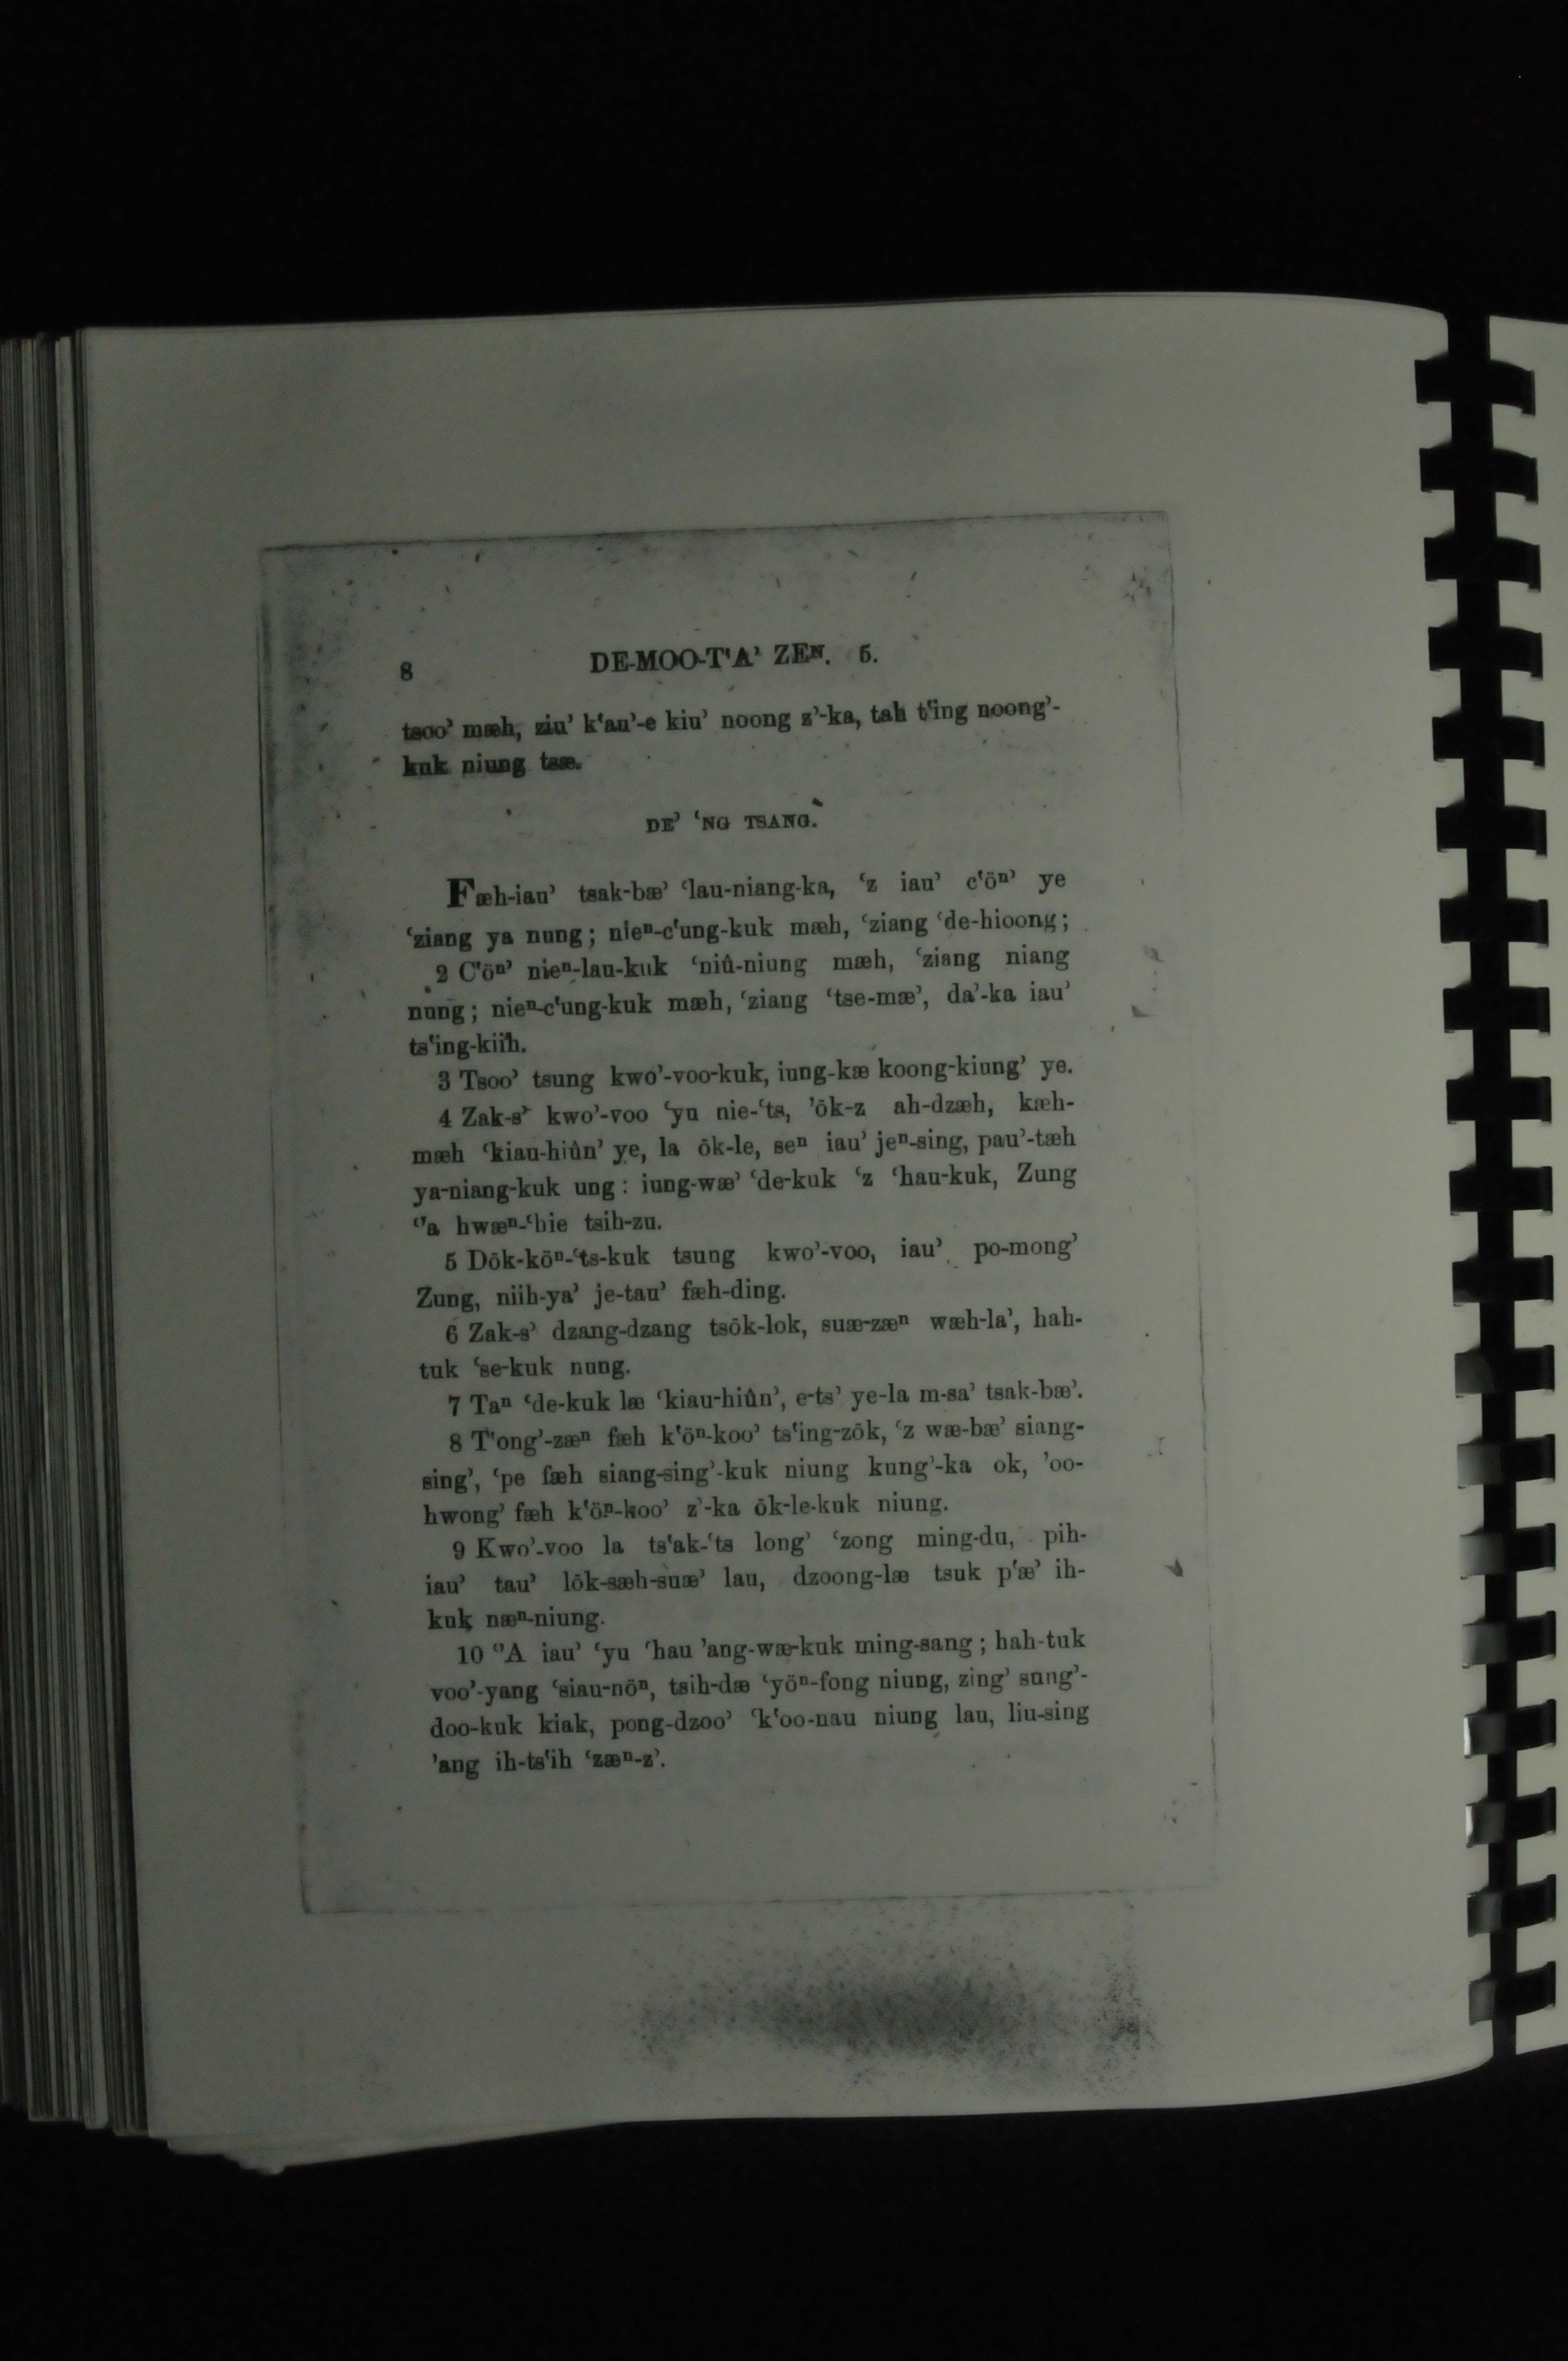 8 DE-MOO-T‘A’ ZEⁿ. 5.
tsoo’ mæh, ziu’ k‘au’-e kiu’ noong z’-ka, tah t‘ing noong’-
kuk niung tsæ.
DE’ ‘NG TSANG.
Fæh-iau’ tsak-bæ’ ‘lau-niang-ka, ‘z iau’ c‘öⁿ’ ye
‘ziang ya nung; nieⁿ-c‘ung-kuk mæh, ‘ziang ‘de-hioong;
2 C‘öⁿ’ nieⁿ-lau-kuk ‘niû-niung mæh, ‘ziang niang
nung; nieⁿ-c‘ung-kuk mæh, ‘ziang ‘tse-mæ’, da’-ka iau’
ts‘ing-kiih.
3 Tsoo’ tsung kwo’-voo-kuk, iung-kæ koong-kiung’ ye.
4 Zak-s’ kwo’-voo ‘yu nie-‘ts, ’ôk-z ah-dzæh, kæh-
mæh ‘kiau-hiûn’ ye, la ôk-le, seⁿ iau’ jeⁿ-sing, pau’-tæh
ya-niang-kuk ung: iung-wæ’ ‘de-kuk ‘z ‘hau-kuk, Zung
‘’a hwæⁿ-‘hie tsih-zu.
5 Dôk-kôⁿ-‘ts-kuk tsung kwo’-voo, iau’ po-mong’
Zung, niih-ya’ je-tau’ fæh-ding.
6 Zak-s’ dzang-dzang tsôk-lok, suæ-zæⁿ wæh-la’, hah-
tuk ‘se-kuk nung.
7 Taⁿ ‘de-kuk læ ‘kiau-hiûn’, e-ts’ ye-la m-sa’ tsak-bæ’.
8 T‘ong’-zæⁿ fæh k‘öⁿ-koo’ ts‘ing-zôk, ‘z wæ-bæ’ siang-
sing’, ‘pe fæh siang-sing’-kuk niung kung’-ka ok, ’oo-
hwong’ fæh k‘öⁿ-koo’ z’-ka ôk-le-kuk niung.
9 Kwo’-voo la ts‘ak-‘ts long’ ‘zong ming-du, pih-
iau’ tau’ lôk-sæh-suæ’ lau, dzoong-læ tsuk p‘æ’ ih-
kuk næⁿ-niung.
10 ‘’A iau’ ‘yu ‘hau ’ang-wæ-kuk ming-sang; hah-tuk
voo’-yang ‘siau-nöⁿ, tsih-dæ ‘yöⁿ-fong niung, zing’ sung’-
doo-kuk kiak, pong-dzoo’ ‘k‘oo-nau niung lau, liu-sing
’ang ih-ts‘ih ‘zæⁿ-z’.